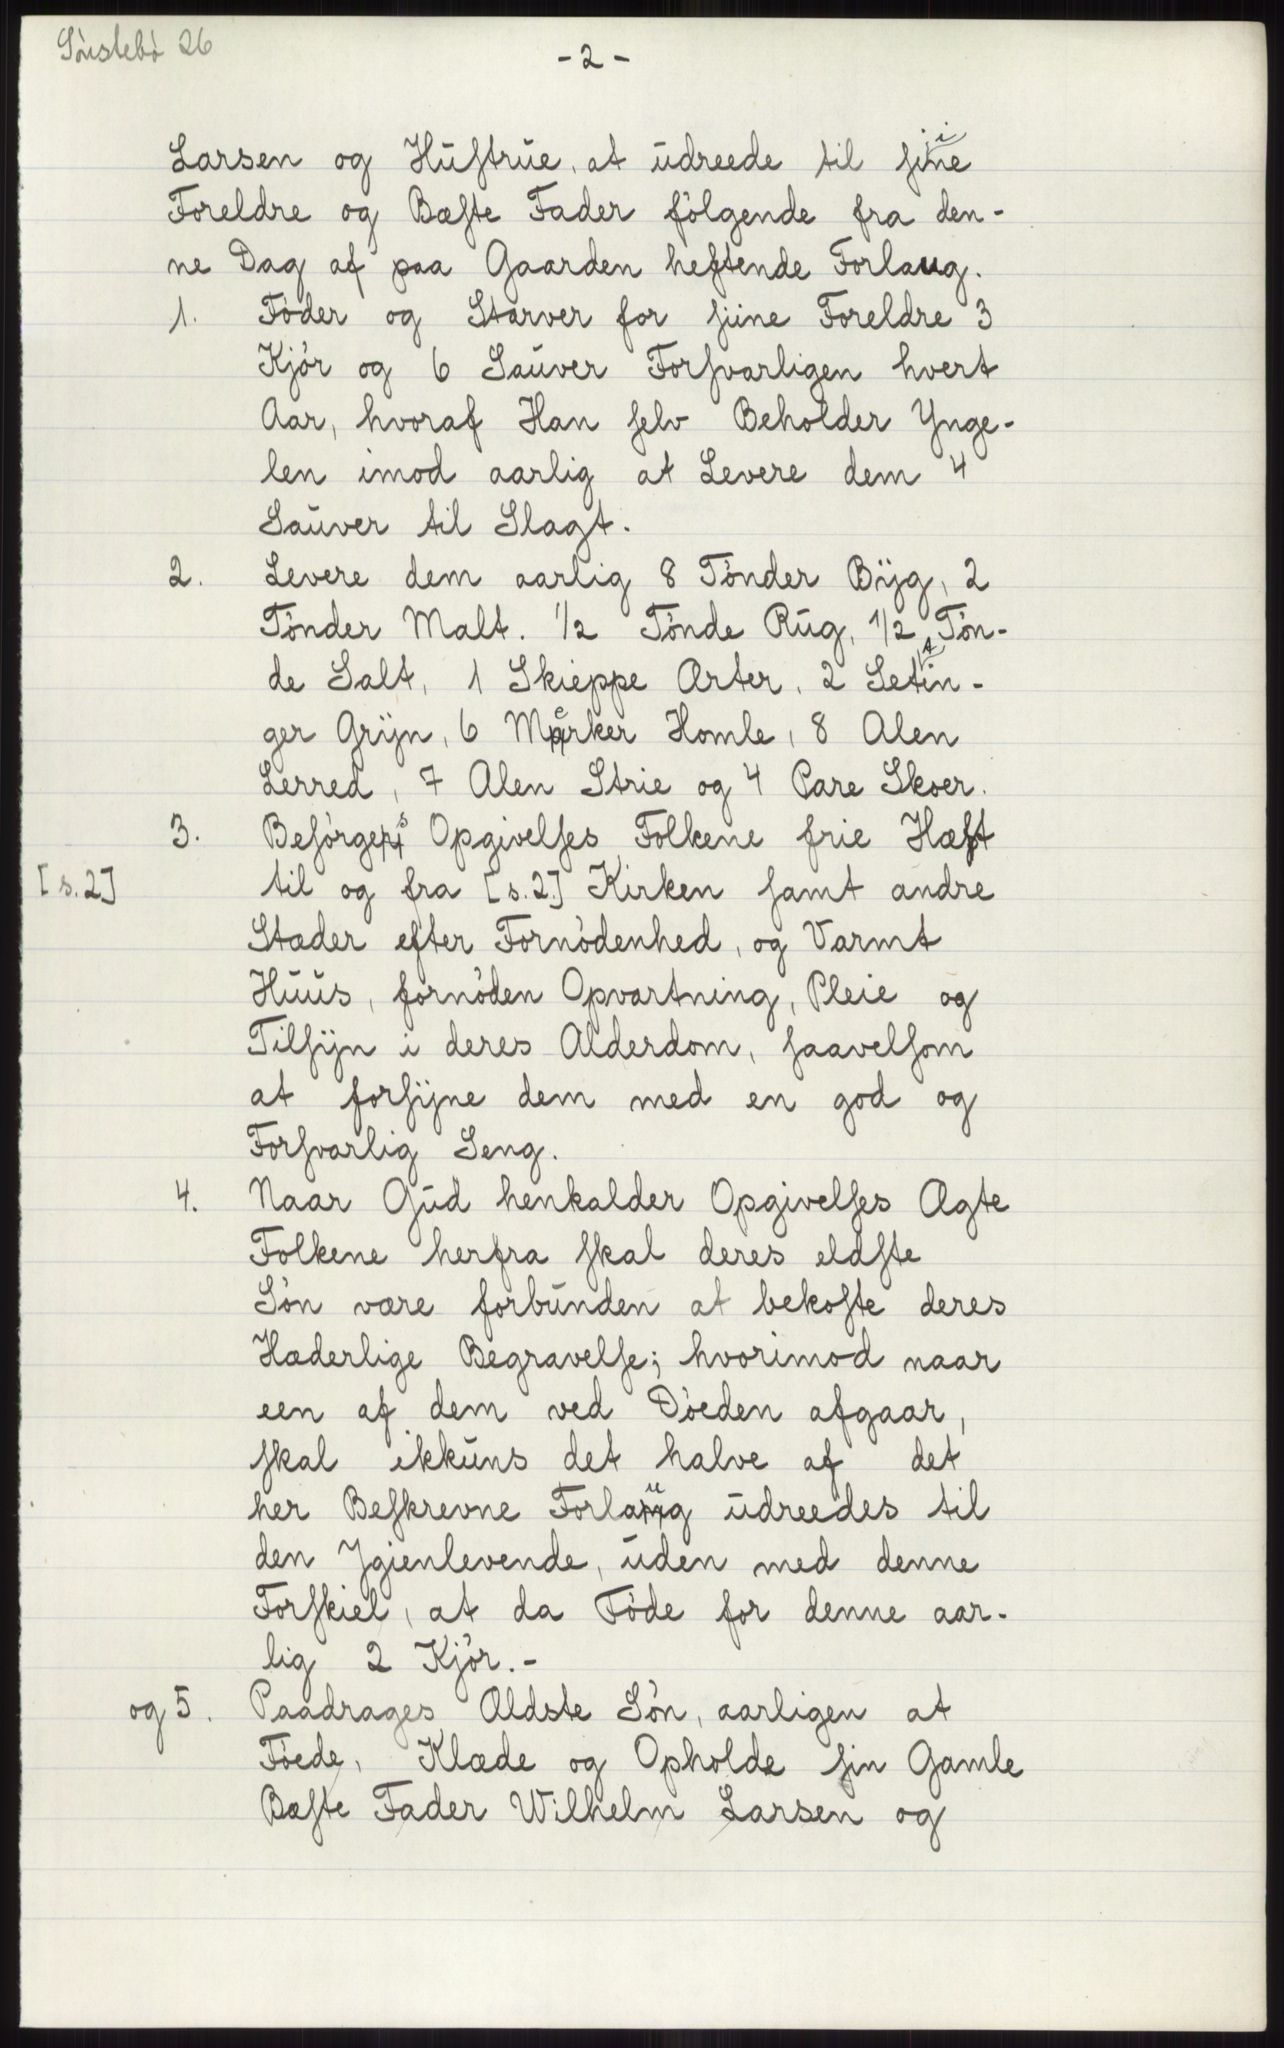 Sönstebö 26
- 2 -
Larsen og Hustrue, at udreede til siine
Foreldre og Bæste Fader fölgende fra den-
ne Dag af paa Gaarden heftende Forlaug.
1. Föder og Starver for siine Foreldre 3
Kjör og 6 Sauver Forsvarligen hvert
Aar, hvoraf Han selv Beholder Ynge-
len imod aarlig at Levere dem 4
Sauver til Slagt.
2. Levere dem aarlig 8 Tönder Bÿg, 2
Tönder Malt. 1/2 Tönde Rug, 1/2 Tön-
de Salt, 1 Skieppe Arter, 2 Settin-
ger Grÿn, 6 Merker Homle, 8 Alen
Lerred, 7 Alen Strie og 4 Pare Skoer.
3. Besörges Opgivelses Folkene frie Hæst
[s.2] til og fra [s.2.] Kirken samt andre
Stæder efter Fornödenhed, og Varmt
Huus, fornöden Opvartning, Pleie og
Tilsÿn i deres Alderdom, saavelsom
at forsÿne dem med en god og
Forsvarlig Seng.
4. Naar Gud henkalder Opgivelses Ægte
Folkene herfra skal deres eldste
Sön være forbunden at bekoste deres
Hæderlige Begravelse; hvorimod naar
een af dem ved Döeden afgaar,
skal ikkuns det halve af det
her Beskrevne Forlaug udreedes til
den Igienlevende, uden med denne
Forskiel, at da Föde for denne aar-
lig 2 Kjör.-
og 5. Paadrages Ældste Sön, aarligen at
Föede, Klæde og Opholde sin Gamle
Bæste Fader Wilhelm Larsen og